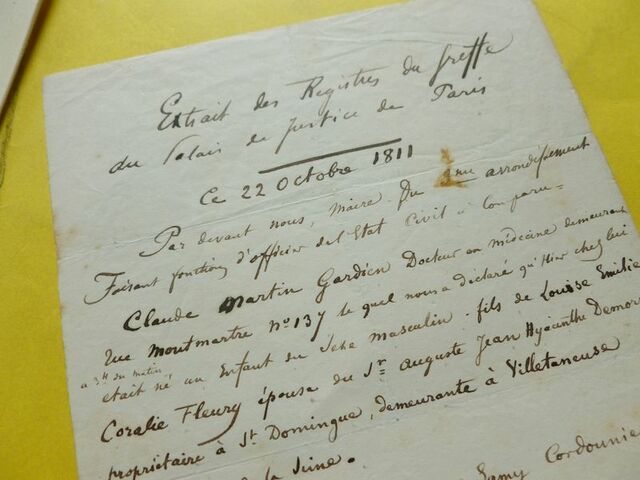 Extrait des Registres du Greffe
du Palais de Justice de Paris
Ce 22 Octobre 1811
Par devant nous, Maire Du 2me arrondissement
Faisant fonctions d'officier del'Etat Civil a Comparu =
Claude Martin Gardien Docteur en médecine demeurant
rue Montmartre n° 137 lequel nous a déclaré qu'Hier chez lui
a 3H du matin,
etait né un Enfant du Sexe masculin - fils de Louise Emilie
Coralie Fleury épouse du Sr Auguste Jean Hyacinthe
propriétaire à St Domingue, demeurante à Villetaneuse
de la Seine.
Cordonnie